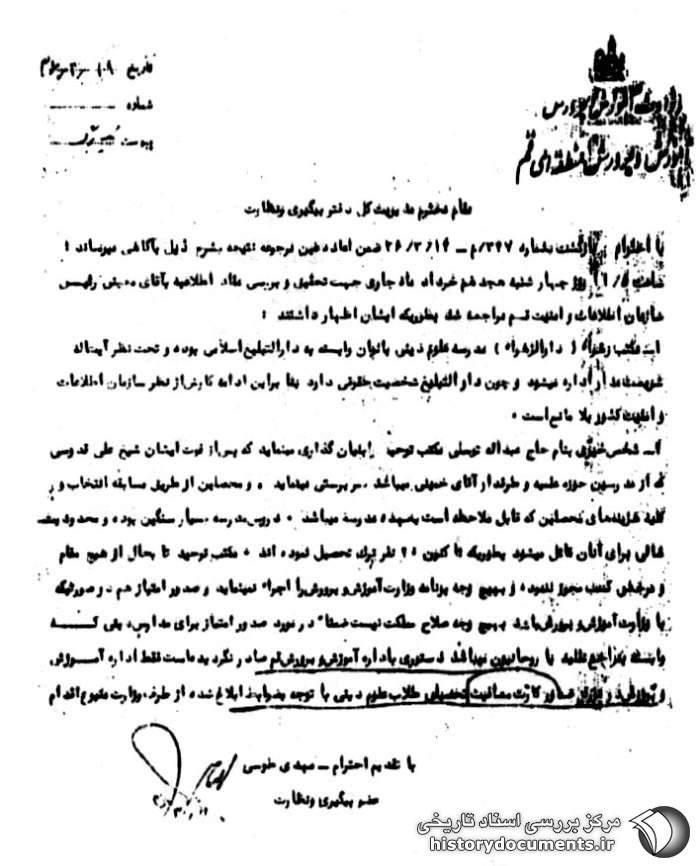 تاریخ
شماره
پیوست
آموزش و پرورش منطقه‌ای قم
مقام محترم مدیریت کل دفتر پیگیری ونظارت
با احترام بازگشت بشماره ۳۴۷/م ــ ۳۶/۳/۱۴ ضمن اعاده عین مرجوعه نتیجه بشرح ذیل بآگاهی میرساند :
روز چهار شنبه هجدهم خرداد ماه جاری جهت تحقیق و بررسی مفاد اطلاعیه بآقای معینی رئیس
سازمان اطلاعات و امنیت قم مراجعه شد بطوریکه ایشان اظهار داشتند :
مکتب زهراء ( دارالزهراء ) مدرسه علوم دینی بانوان وابسته به دارالتبلیغ اسلامی بوده و تحت نظر آیت‌اله
شریعتمدار اداره میشود و چون دارالتبلیغ شخصیت حقوقی دارد بنا براین ادامه کارش از نظر سازمان اطلاعات
و امنیت کشور بلا مانع است ۰
شخص خیری بنام حاج عبداله توسلی مکتب توحید را بنیان گذاری مینماید که پس از فوت ایشان شیخ علی قدوسی
که از مدرسین حوزه علمیه و طرفدار آقای خمینی میباشد سرپرستی مینماید ۰ و محصلین از طریق مسابقه انتخاب و
کلیه هزینه‌های محصلین که قابل ملاحظه است بعهده مدرسه میباشد ۰ دروس مدرسه بسیار سنگین بوده و محدودیت
برای آنان قائل میشود بطوریکه تا کنون نفر ترک تحصیل نموده اند ۰ مکتب توحید تا بحال از هیچ مقام
و مرجعی کسب مجوز ننموده و بهیچ وجه برنامه وزارت آموزش و پرورش را اجراء نمینماید و صدور امتیاز هم در صورتیکه
با وزارت آموزش و پرورش باشد بهیچ وجه صلاح مملکت نیست ضمنا" در مورد صدور امتیاز برای مدارس دینی کــه
وابسته بمراجع تقلید یا روحانیون میباشد دستوری باداره آموزش و پرورش قم صادر نگردیده است فقط اداره آمــوزش
و پرورش در کارت معافیت تحصیلی طلاب علوم دینی با توجه بضوابط ابلاغ شده از طرف وزارت متبوع اقدام
با تقدیم احترام ــ مهدی طوسی
عضو پیگیری ونظارت
مرکز بررسی اسناد تاریخی
historydocuments.ir